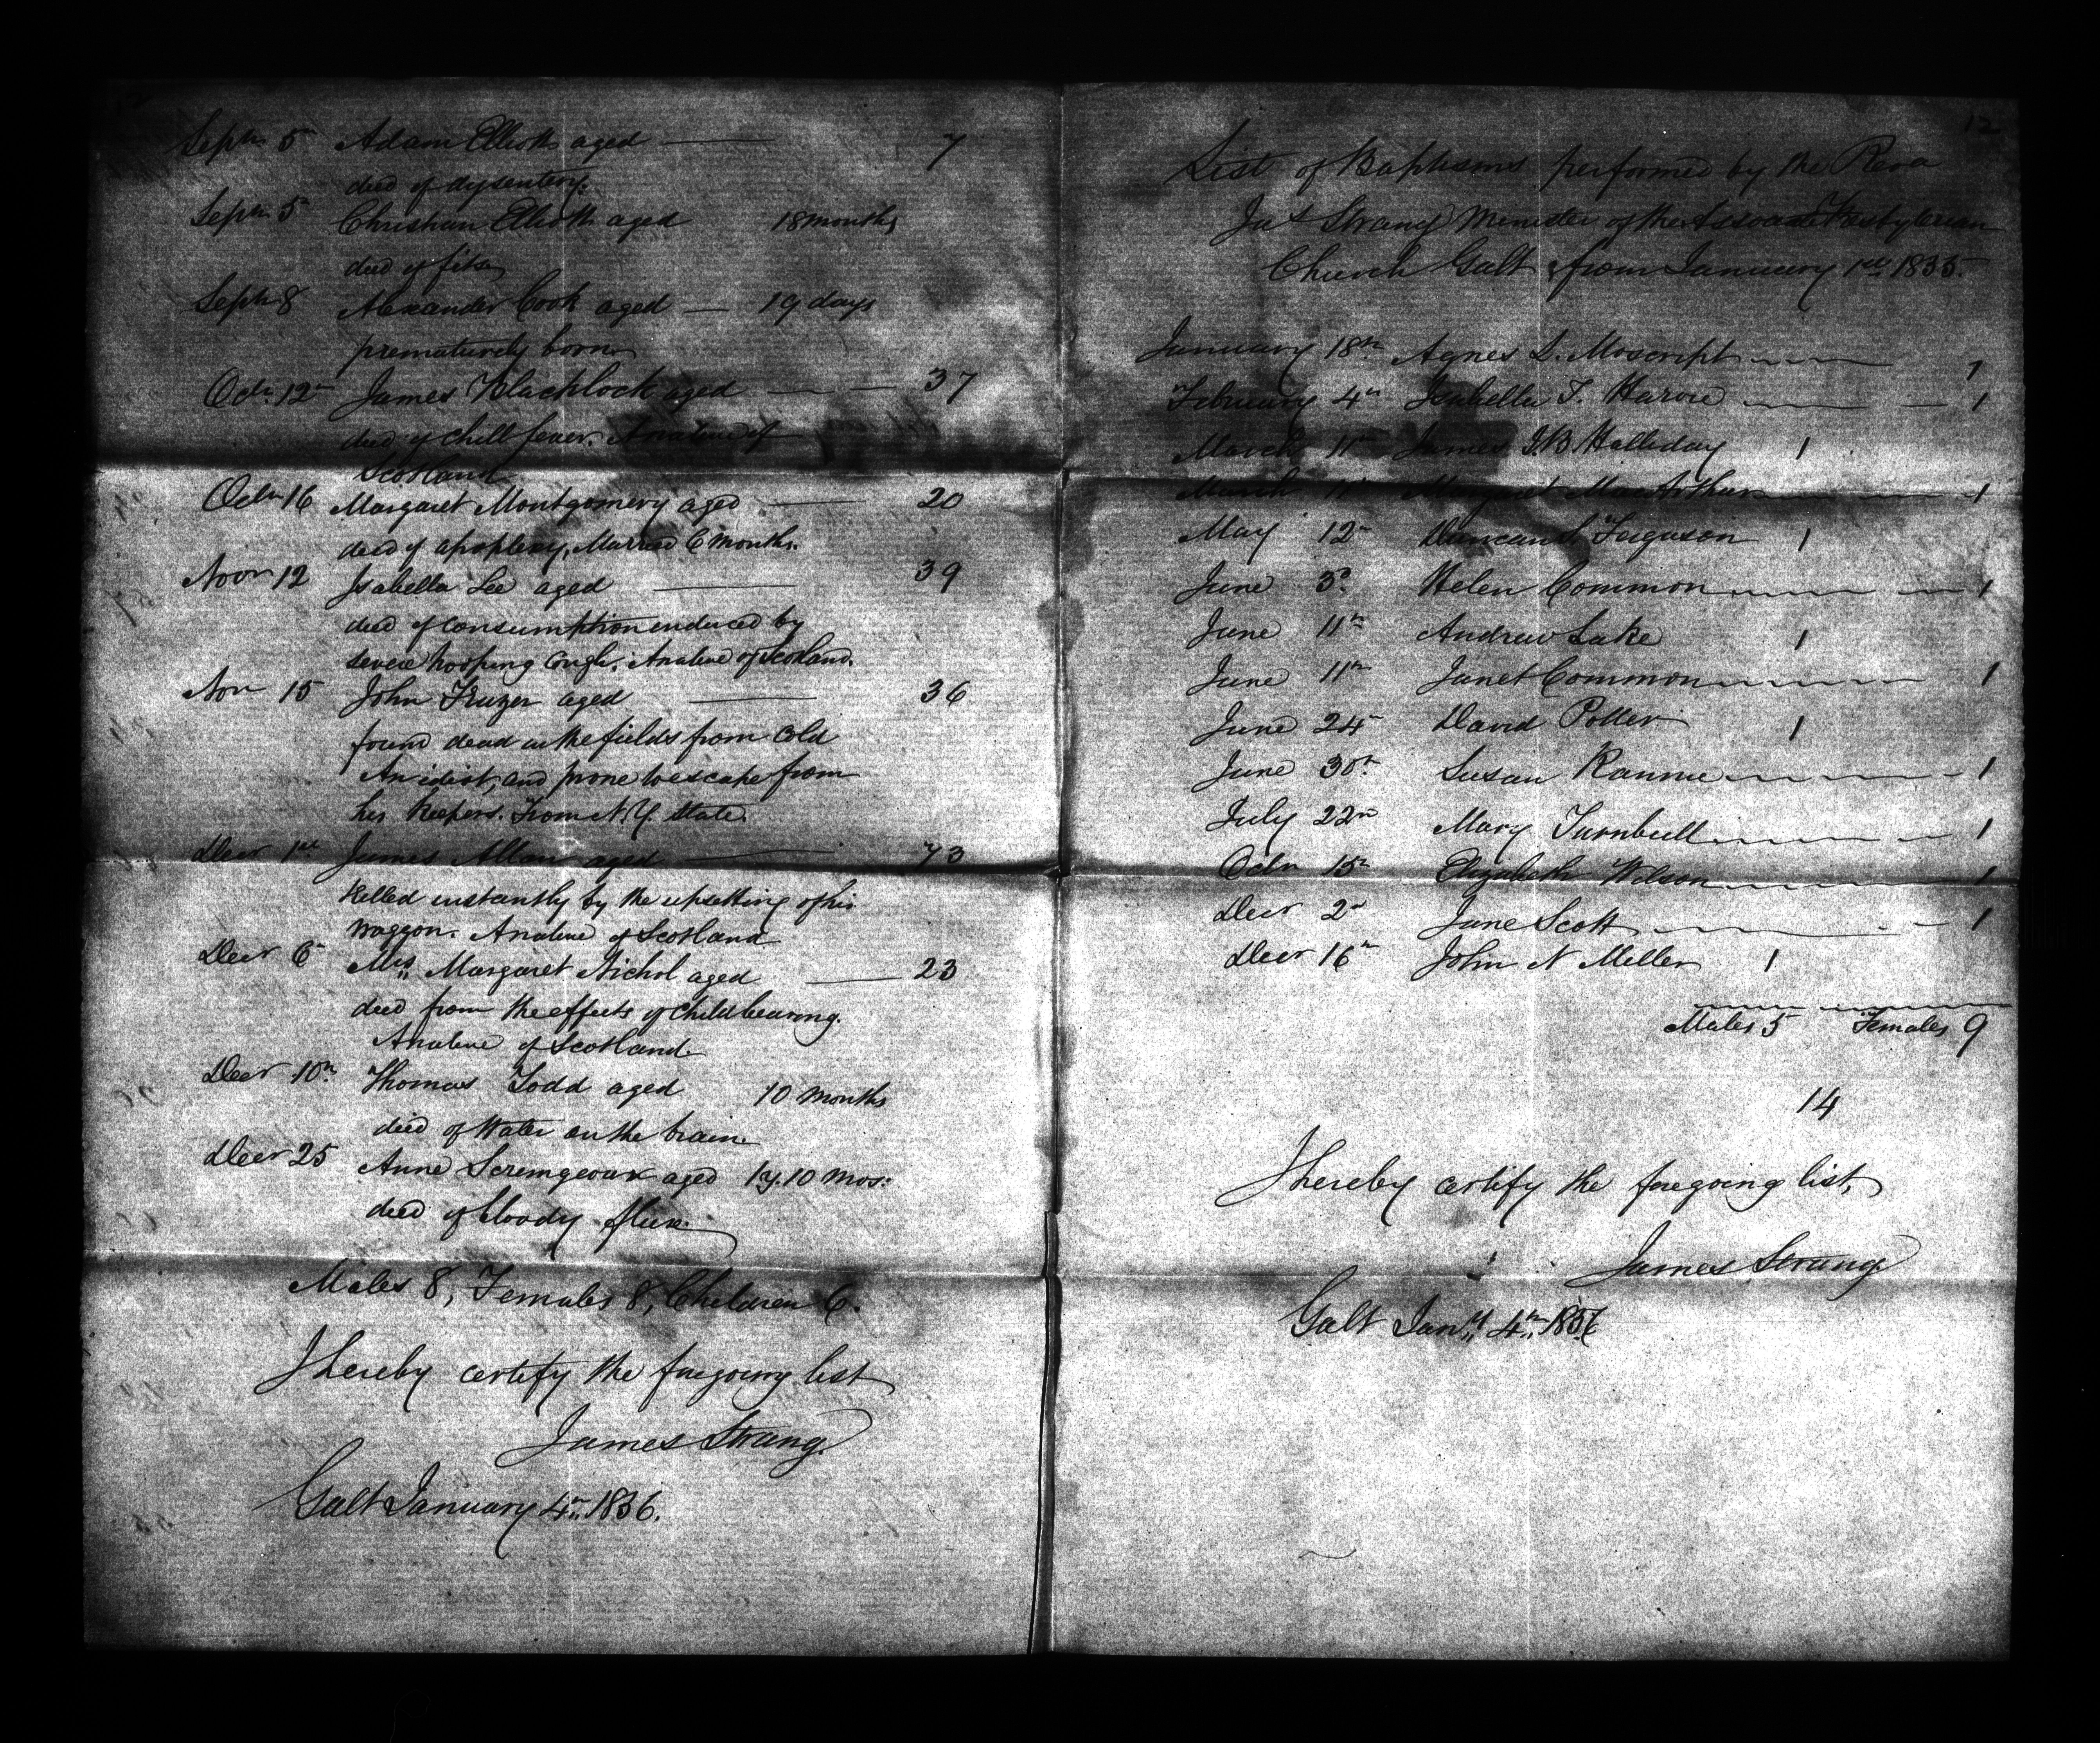 Septr 5 Adam Elliott aged — 7
died of dysentery.
Septr 5 Christian Elliott aged 18 months
died of fits
Septr 8 Alexander Cook aged — 19 days
prematurely born
Octr 12th James Blacklock aged — 37
died of chill fever. A native of
Scotland
Octr 16 Margaret Montgomery aged — 20
died of apoplexy, Married 6 months.
Novr 12 Isabella Lee aged — 39
died of consumption enduced by
severe hooping Cough. A native of Scotland.
Novr 15 John Fruzer aged — 36
found dead in the fields from Cold
An idiot, and prone to escape from
his Keepers. From N.Y. State.
Decr 1st James Allan aged — 73
Killed instantly by the upsetting of his
waggon. A native of Scotland
Decr 6th Mrs Margaret Nichol aged — 23
died from the effects of childbearing.
A native of Scotland.
Decr 10th Thomas Todd aged 10 months
died of Water on the brain
Decr 25 Anne Scremgeour aged 1y. 10 mos:
died of bloody flux.
Males 8, Females 8, Children 6.
I hereby certify the foregoing list
James Strang
Galt January 4th 1836.
12
List of Baptisms performed by the Revd
Jas Strang Minister of the Associate Presbyterian
Church Galt, from January 1st 1835.
January 18th Agnes L. Moscript 1
February 4th Isabella T. Harvie 1
March 11th James J.B. Halliday 1
March 11th Margaret MacArthur 1
May 12th Duncan Ferguson 1
June 3d Helen Common 1
June 11th Andrew Lake 1
June 11th Janet Common 1
June 24th David Potter 1
June 30th Susan Rannie 1
July 22nd Mary Turnbull 1
Octr 15th Elizabeth Wilson 1
Decr 2d Jane Scott 1
Decr 16th John N Miller 1
Males 5 Females 9
14
I hereby certify the foregoing list,
James Strang
Galt Jany 4th 1836